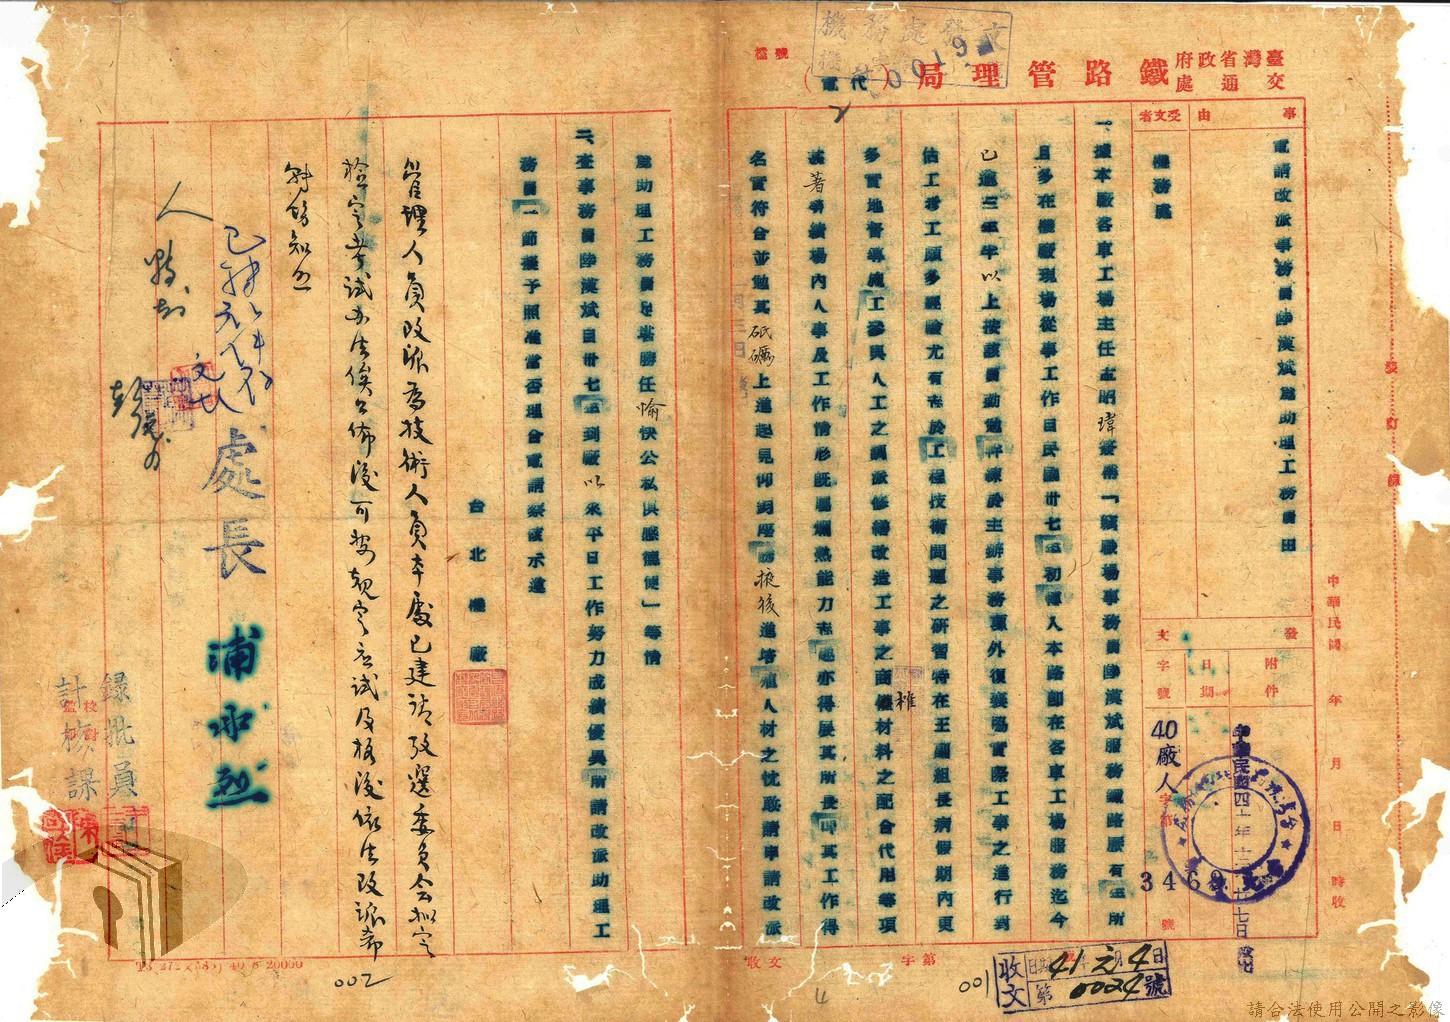 臺灣省政府交通處鐵路管理局（代電）
檔號
0019
事由
受文者
電請改派事務員陳漢斌為助理工務員由
機務處
發文
附件
日期
字號
中華民國四十年十二月廿七日發出
40廠人字第3469號
一、據本廠客車工場主任王昭瑋簽稱「竊職場事務員陳漢斌服務鐵路歷有年所
且多在機廠現場從事工作自民國卅七年初轉入本路即在客車工場服務迄今
已逾三年半以上按該員勤勉幹練於主辦事務課外復襄協實際工事之進行對
估工考工頗多經驗尤有志於工程技術問題之研習特在王副組長病假期內更
多實地督導施工參與人工之調派修繕改造工事之商榷材料之配合代用等項
甚著勞績場內人事及工作情形既屬嫻熟能力志趣亦得展其所長叩其工作得
名實符合並勉其砥礪上進起見仰祈層峰掖後進培植人材之忱敬請準請改派
為助理工務員必當勝任愉快公私俱感德便」等情
二、查事務員陳漢斌自卅七年到廠以來平日工作努力成績優異所請改派助理工
務員一節擬予照准當否理合電請察核示遵
台北機廠
管理人員改派為技術人員本處已建議考選委員會擬定
檢定考試辦法俟公佈後可按規定應試及格後依法改派希
轉飭知照
處長 浦永烈
錄批員
計核課
校對
監印
中華民國 年 月 日 時收
收文 字第 號
收文
日期 41元4日
第0024號
001
002
裝訂線
請合法使用公開之影像